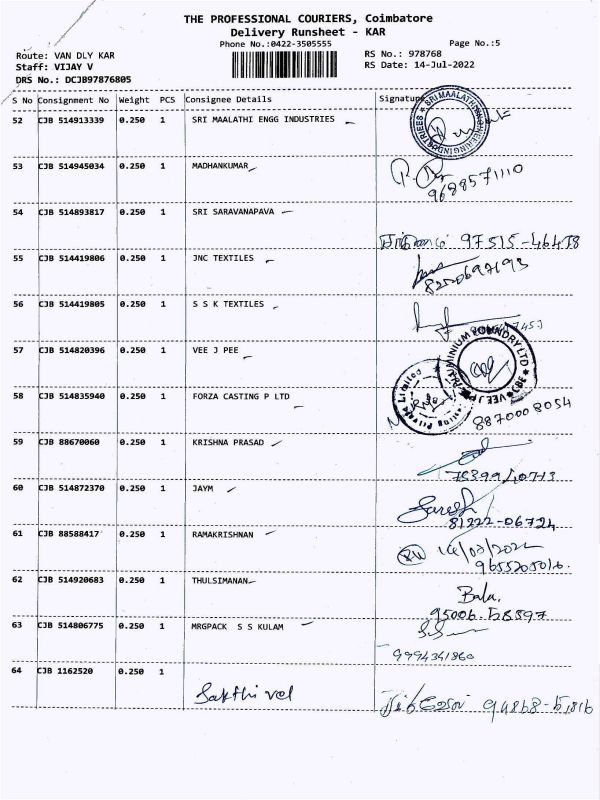 THE PROFESSIONAL COURIERS, Coimbatore
Delivery Runsheet - KAR
Phone No.:0422-3505555 Page No.:5
Route: VAN DLY KAR RS No.: 978768
Staff: VIJAY V RS Date: 14-Jul-2022
DRS No.: DCJB97876805
S No Consignment No Weight PCS Consignee Details Signature
52 CJB 514913339 0.250 1 SRI MAALATHI ENGG INDUSTRIES
53 CJB 514945034 0.250 1 MADHANKUMAR
9688571110
54 CJB 514893817 0.250 1 SRI SARAVANAPAVA
97515-46478
55 CJB 514419806 0.250 1 JNC TEXTILES
8220697193
56 CJB 514419805 0.250 1 S S K TEXTILES
57 CJB 514820396 0.250 1 VEE J PEE
58 CJB 514835940 0.250 1 FORZA CASTING P LTD
8870008054
59 CJB 88670060 0.250 1 KRISHNA PRASAD
60 CJB 514872370 0.250 1 JAYM
Suresh
81222-06724
61 CJB 88588417 0.250 1 RAMAKRISHNAN
14/07/2022
62 CJB 514920683 0.250 1 THULSIMANAN
Bala.
95006-58597
63 CJB 514806775 0.250 1 MRGPACK S S KULAM
9994341860
64 CJB 1162520 0.250 1
Sakthi vel
94868-51816